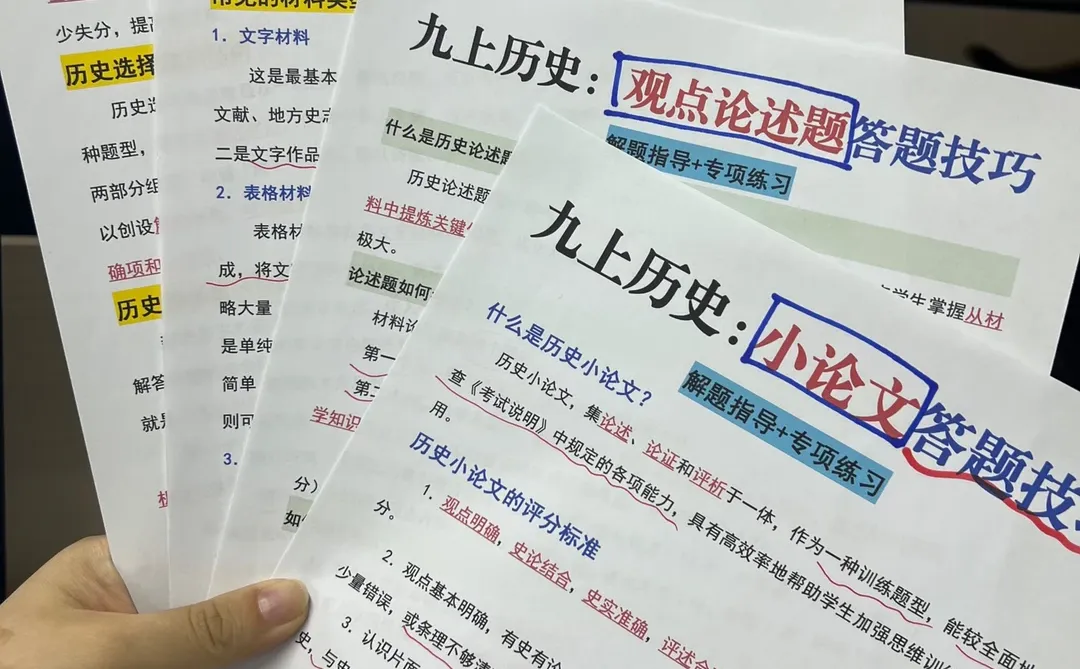 少失分，提高
历史选择
历史选
种题型，
两部分组
以创设
确项和
历史
解答
就是
常见的材料类型
1. 文字材料
这是最基本
文献、地方史志
二是文字作品
2. 表格材料
表格材
成，将文
略大量
是单纯
简单
则可
3.
九上历史：观点论述题答题技巧
解题指导+专项练习
什么是历史论述题
历史论述题
学生掌握从材
料中提炼关键
极大。
论述题如何
材料论
第一
第二
学知识
分）
如
九上历史：小论文答题技
解题指导+专项练习
什么是历史小论文？
历史小论文，集论述、论证和评析于一体，作为一种训练题型，能较全面地
查《考试说明》中规定的各项能力，具有高效率地帮助学生加强思维训
用。
历史小论文的评分标准
1. 观点明确，史论结合，史实准确，评述合
分。
2. 观点基本明确，有史有论
少量错误，或条理不够清
3. 认识片面
史，与史